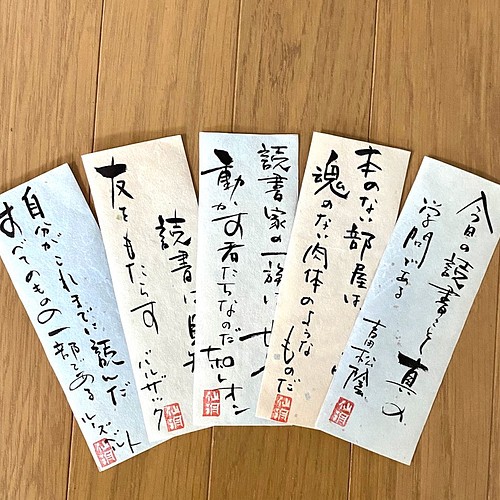 今日の読書こそ真の
学問である
吉田松陰
本のない部屋は
魂のない肉体のような
ものだ
読書家の一族は
動かす者たちなのだ ナポレオン
読書は
友をもたらす
バルザック
自分がこれまでに読んだ
すべてのものの一部である ルーズベルト